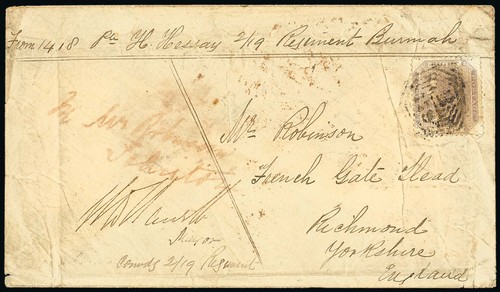 From 1418 Pte H. Hessay 2/19 Regiment Burmah
Mr Robinson
French Gate Head
Richmond
Yorkshire
England
Major
Comdg 2/19 Regiment